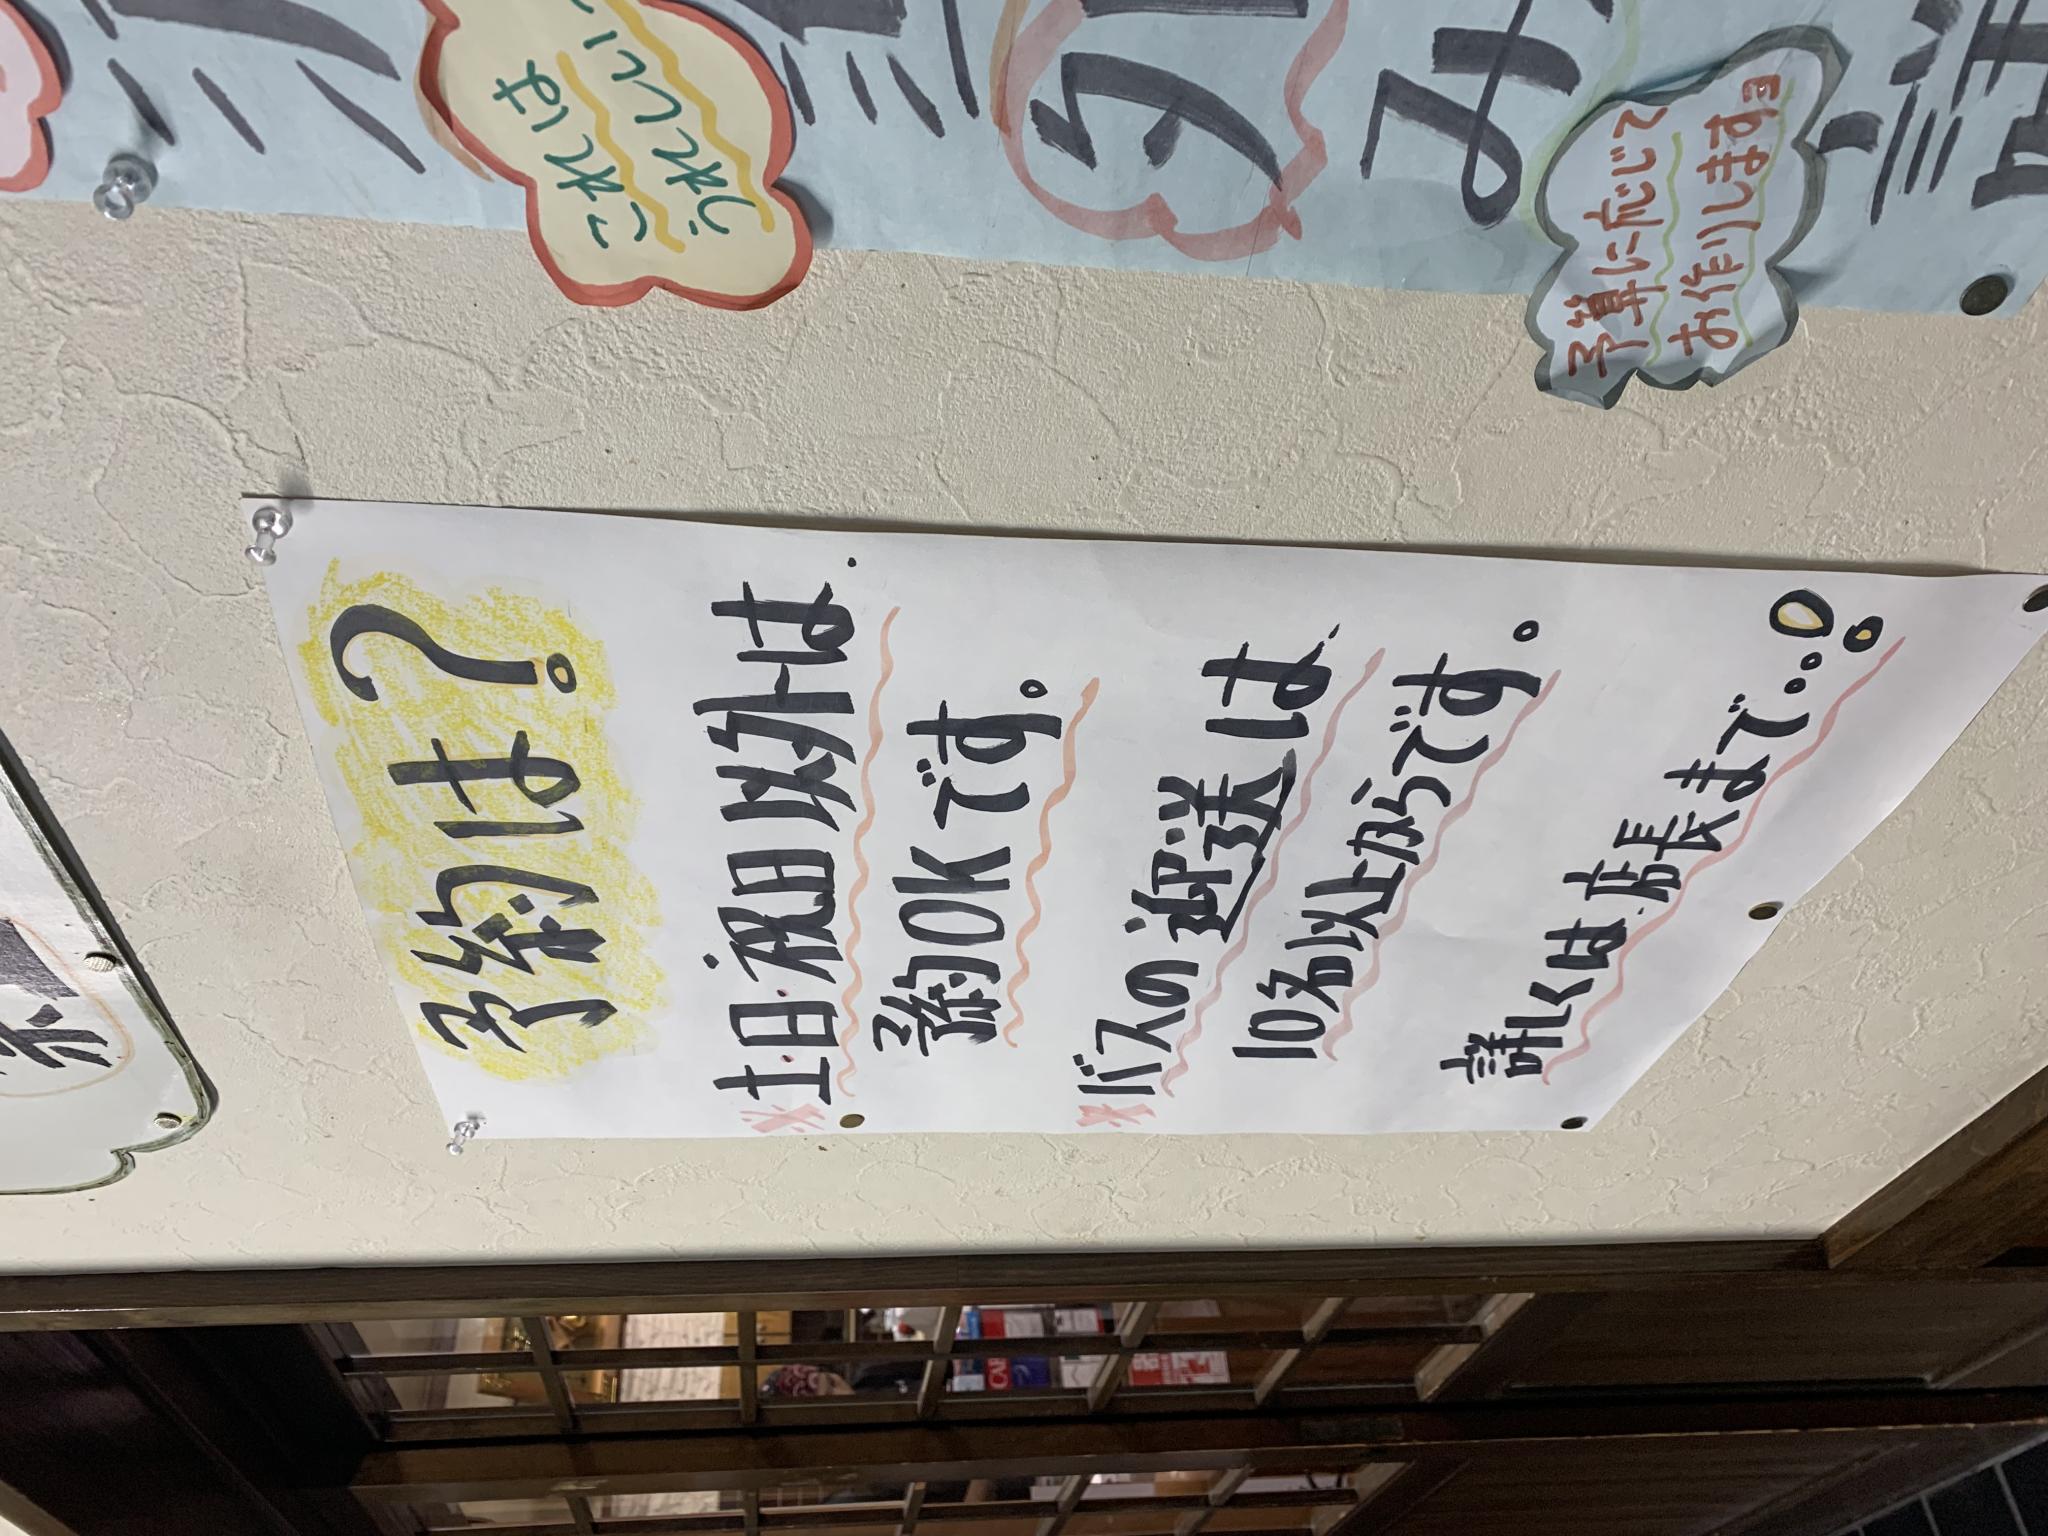 予約は?
※土・日・祝日以外は、
予約OKです。
※バスの迎送は、
10名以上からです。
詳しくは.店長まで・・。
これは
うれしいー
予算に応じて
お作りしますョ